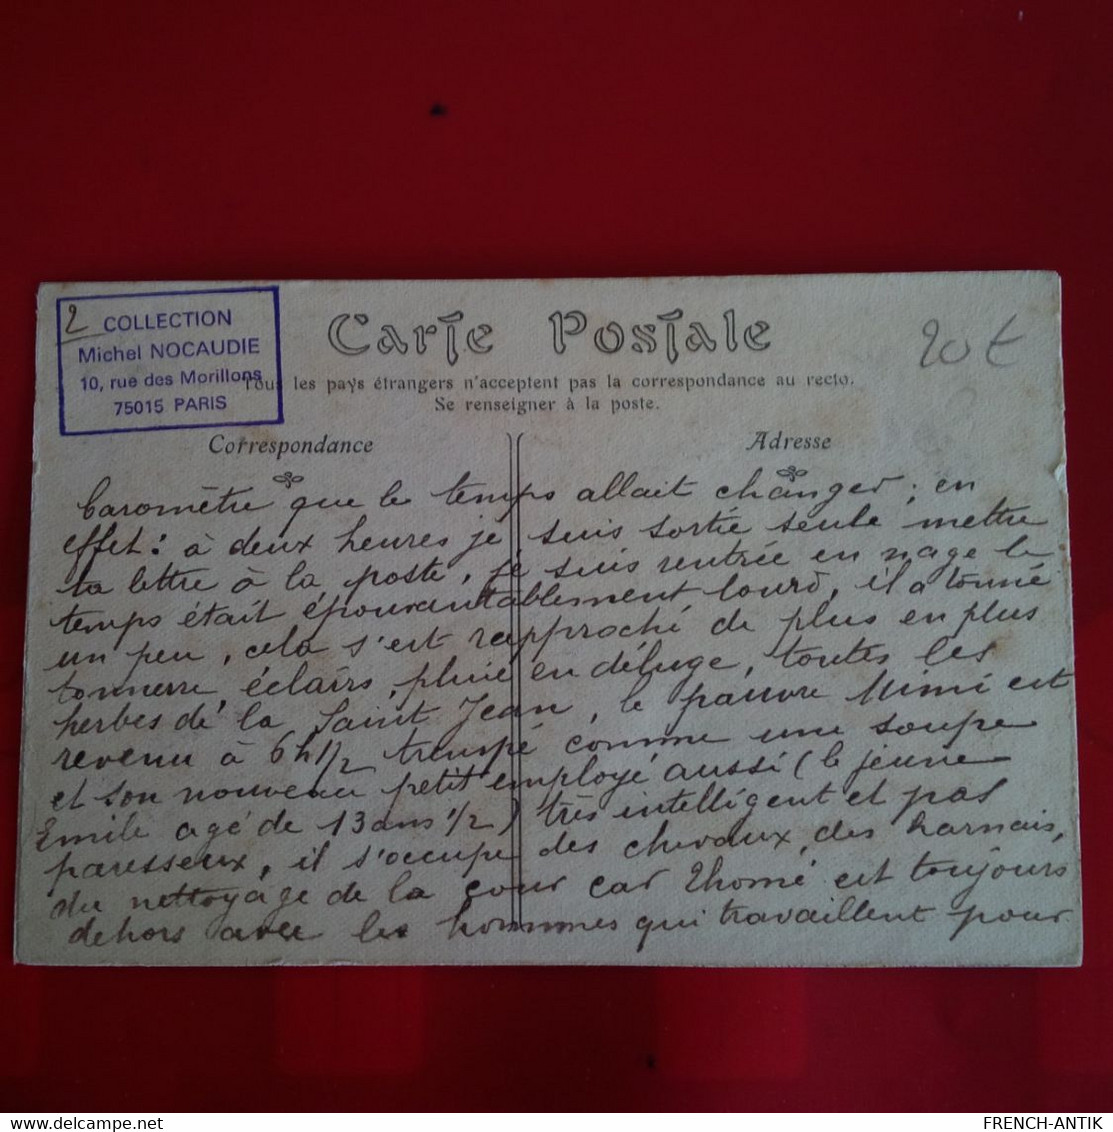 2
COLLECTION
Michel NOCAUDIE
10, rue des Morillons
75015 PARIS
Carte Postale
20 €
Tous les pays étrangers n'acceptent pas la correspondance au recto.
Se renseigner à la poste.
Correspondance
Adresse
baromètre que le temps allait changer ; en
effet : à deux heures je suis sortie seule mettre
ta lettre à la poste, je suis rentrée en nage le
temps était épouvantablement lourd, il a tonné
un peu, cela s'est rapproché de plus en plus
tonnerre éclairs, pluie en déluge, toutes les
herbes de la Saint Jean, le pauvre Mimi est
revenu à 6h1/2 trempé comme une soupe
et son nouveau petit employé aussi (le jeune
Emile agé de 13 ans 1/2) très intelligent et pas
paresseux, il s'occupe des chevaux, des harnais,
du nettoyage de la cour car Thomé est toujours
dehors avec les hommes qui travaillent pour
FRENCH-ANTIK